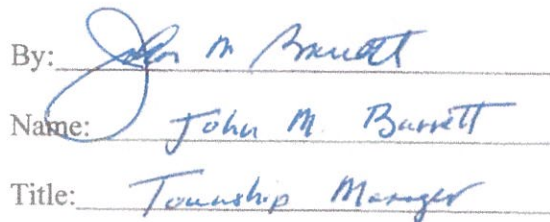 By: John M Barrett
Name: John M. Barrett
Title: Township Manager